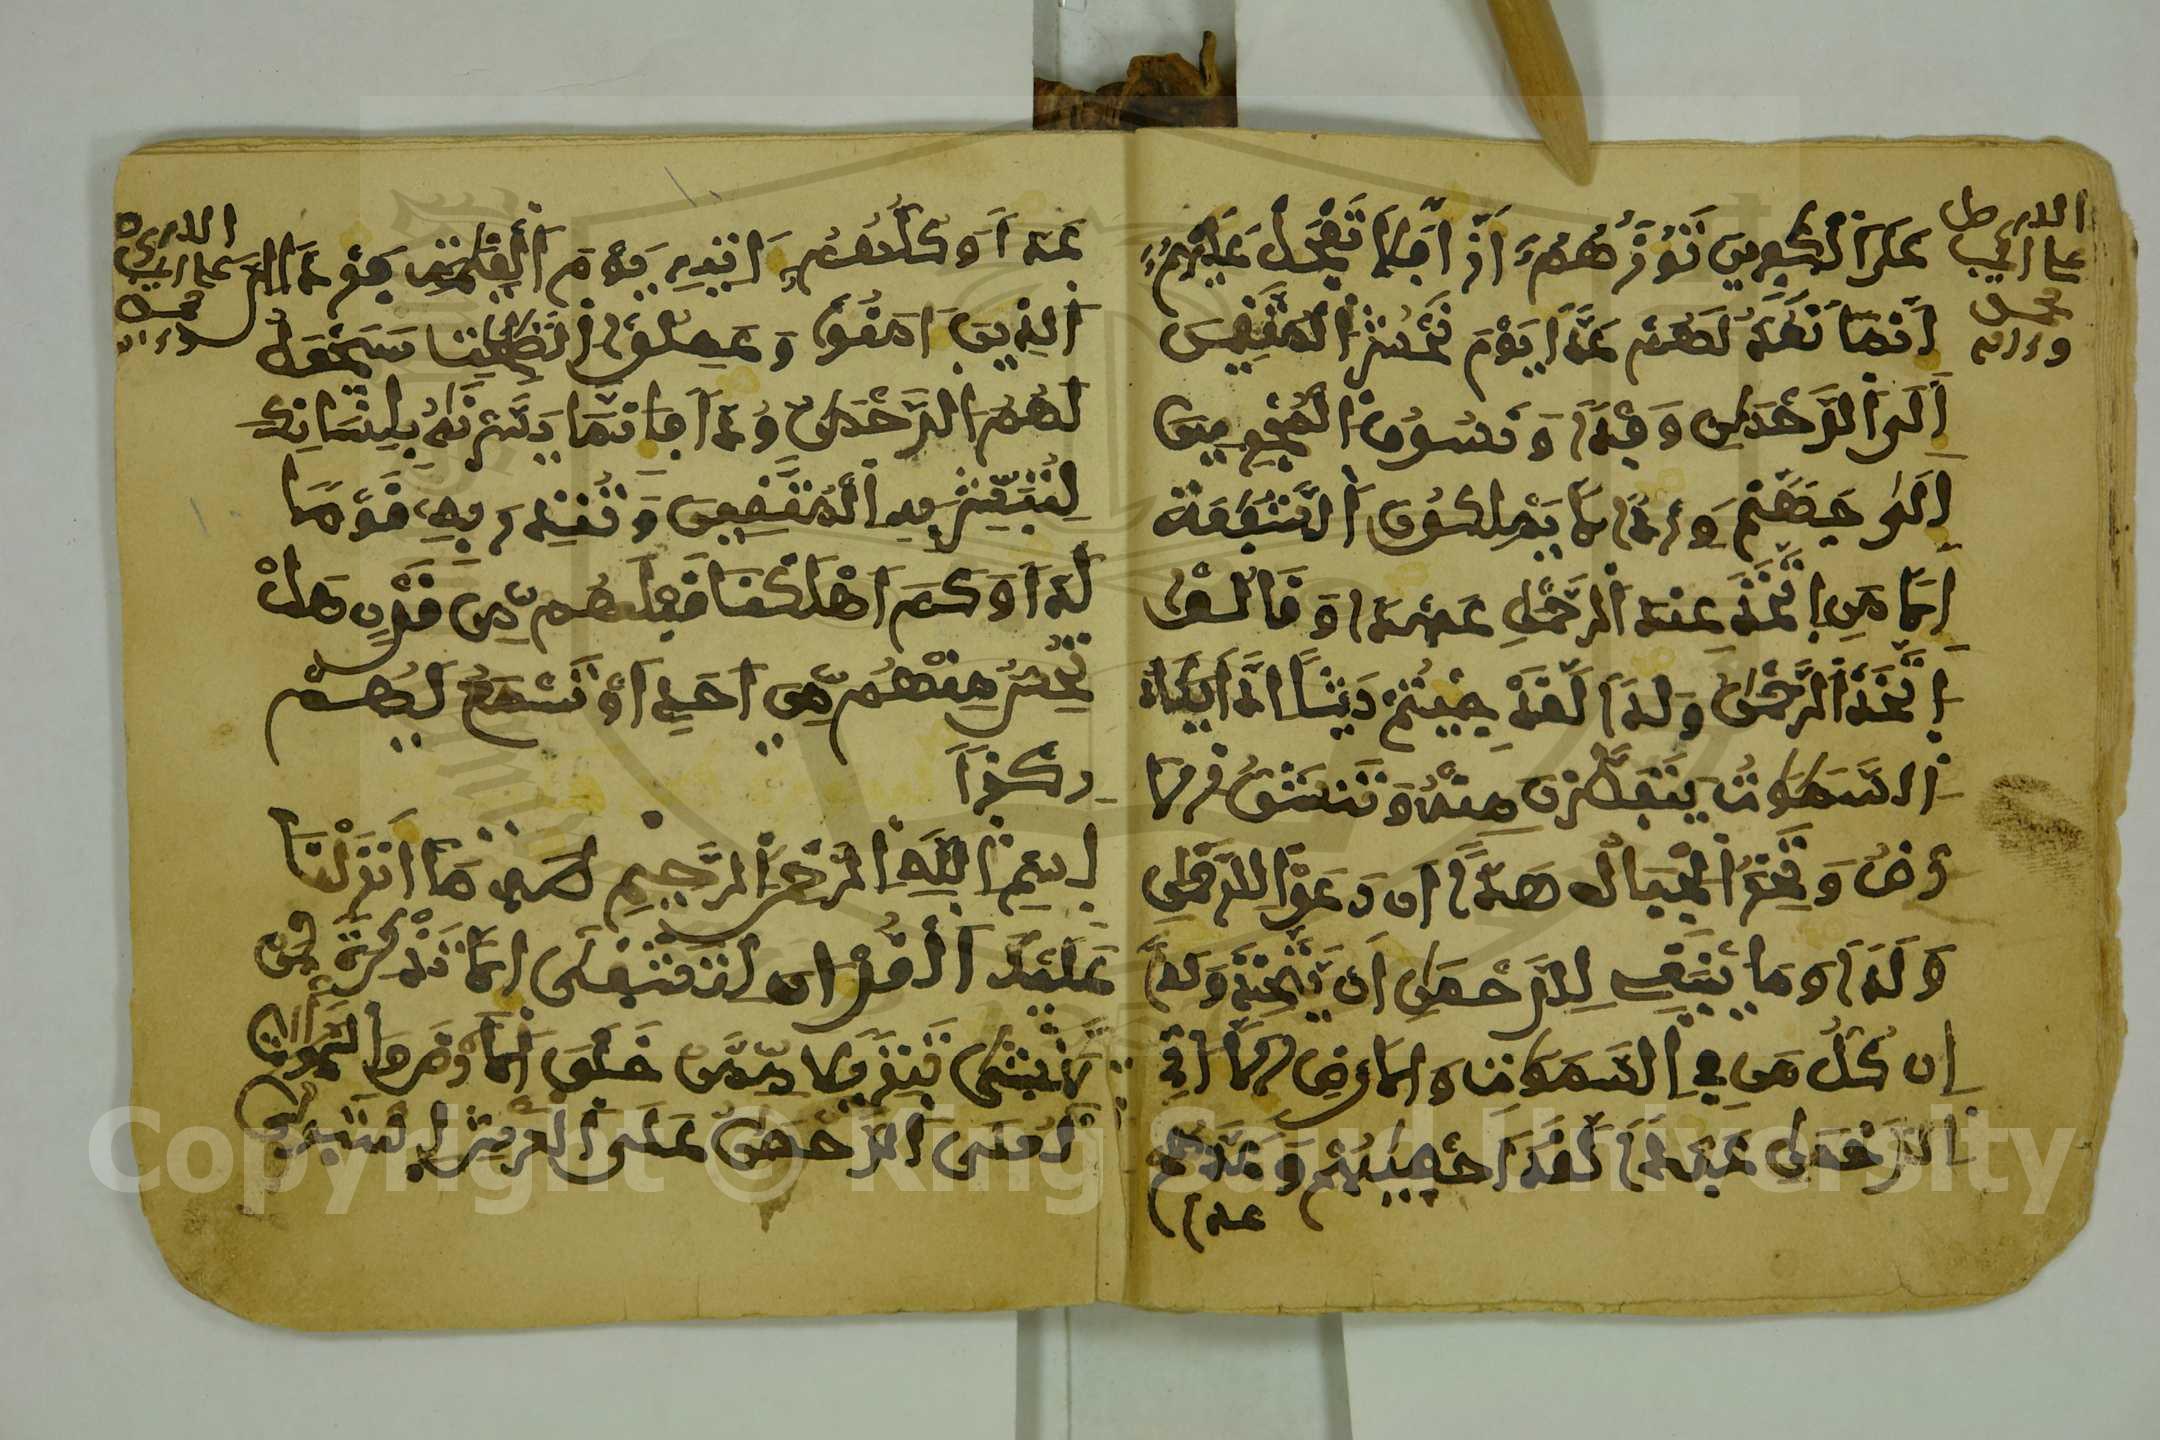 على الكفرين تؤزهم أزا فلا تعجل عليهم
إنما نعد لهم عدا يوم نحشر المتقين
إلى الرحمن وفدا ونسوق المجرمين
إلى جهنم وردا لا يملكون الشفعة
إلا من اتخذ عند الرحمن عهدا وقالوا
اتخذ الرحمن ولدا لقد جئتم شيئا إدا يكاد
السموت يتفطرن منه وتنشق الا
رض وتخر الجبال هدا ان دعوا للرحمن
ولدا وما ينبغي للرحمن أن يتخذ ولدا
إن كل من في السموت والارض إلا اتي
الرحمن عبدا لقد احصيهم وعدهم
عدا
وكلهم اتيه يوم القيمة فردا ان
الذين امنوا وعملوا الصلحت سيجعل
لهم الرحمن ودا فإنما يسرنه بلسانك
لتبشر به المتقين وتنذر به قوما
لدا وكم أهلكنا قبلهم من قرن هل
تحس منهم من احد أو تسمع لهم
ركزا
بسم الله الرحمن الرحيم طه ما أنزلنا
عليك القران لتشقى الا تذكرة لمن
يخشى تنزيلا ممن خلق الارض والسموت
العلى الرحمن على العرش استوى
Copyright © King Saud University